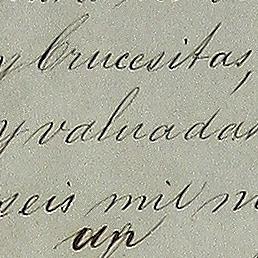 y Crucesitas,
y valuadas
seis mil